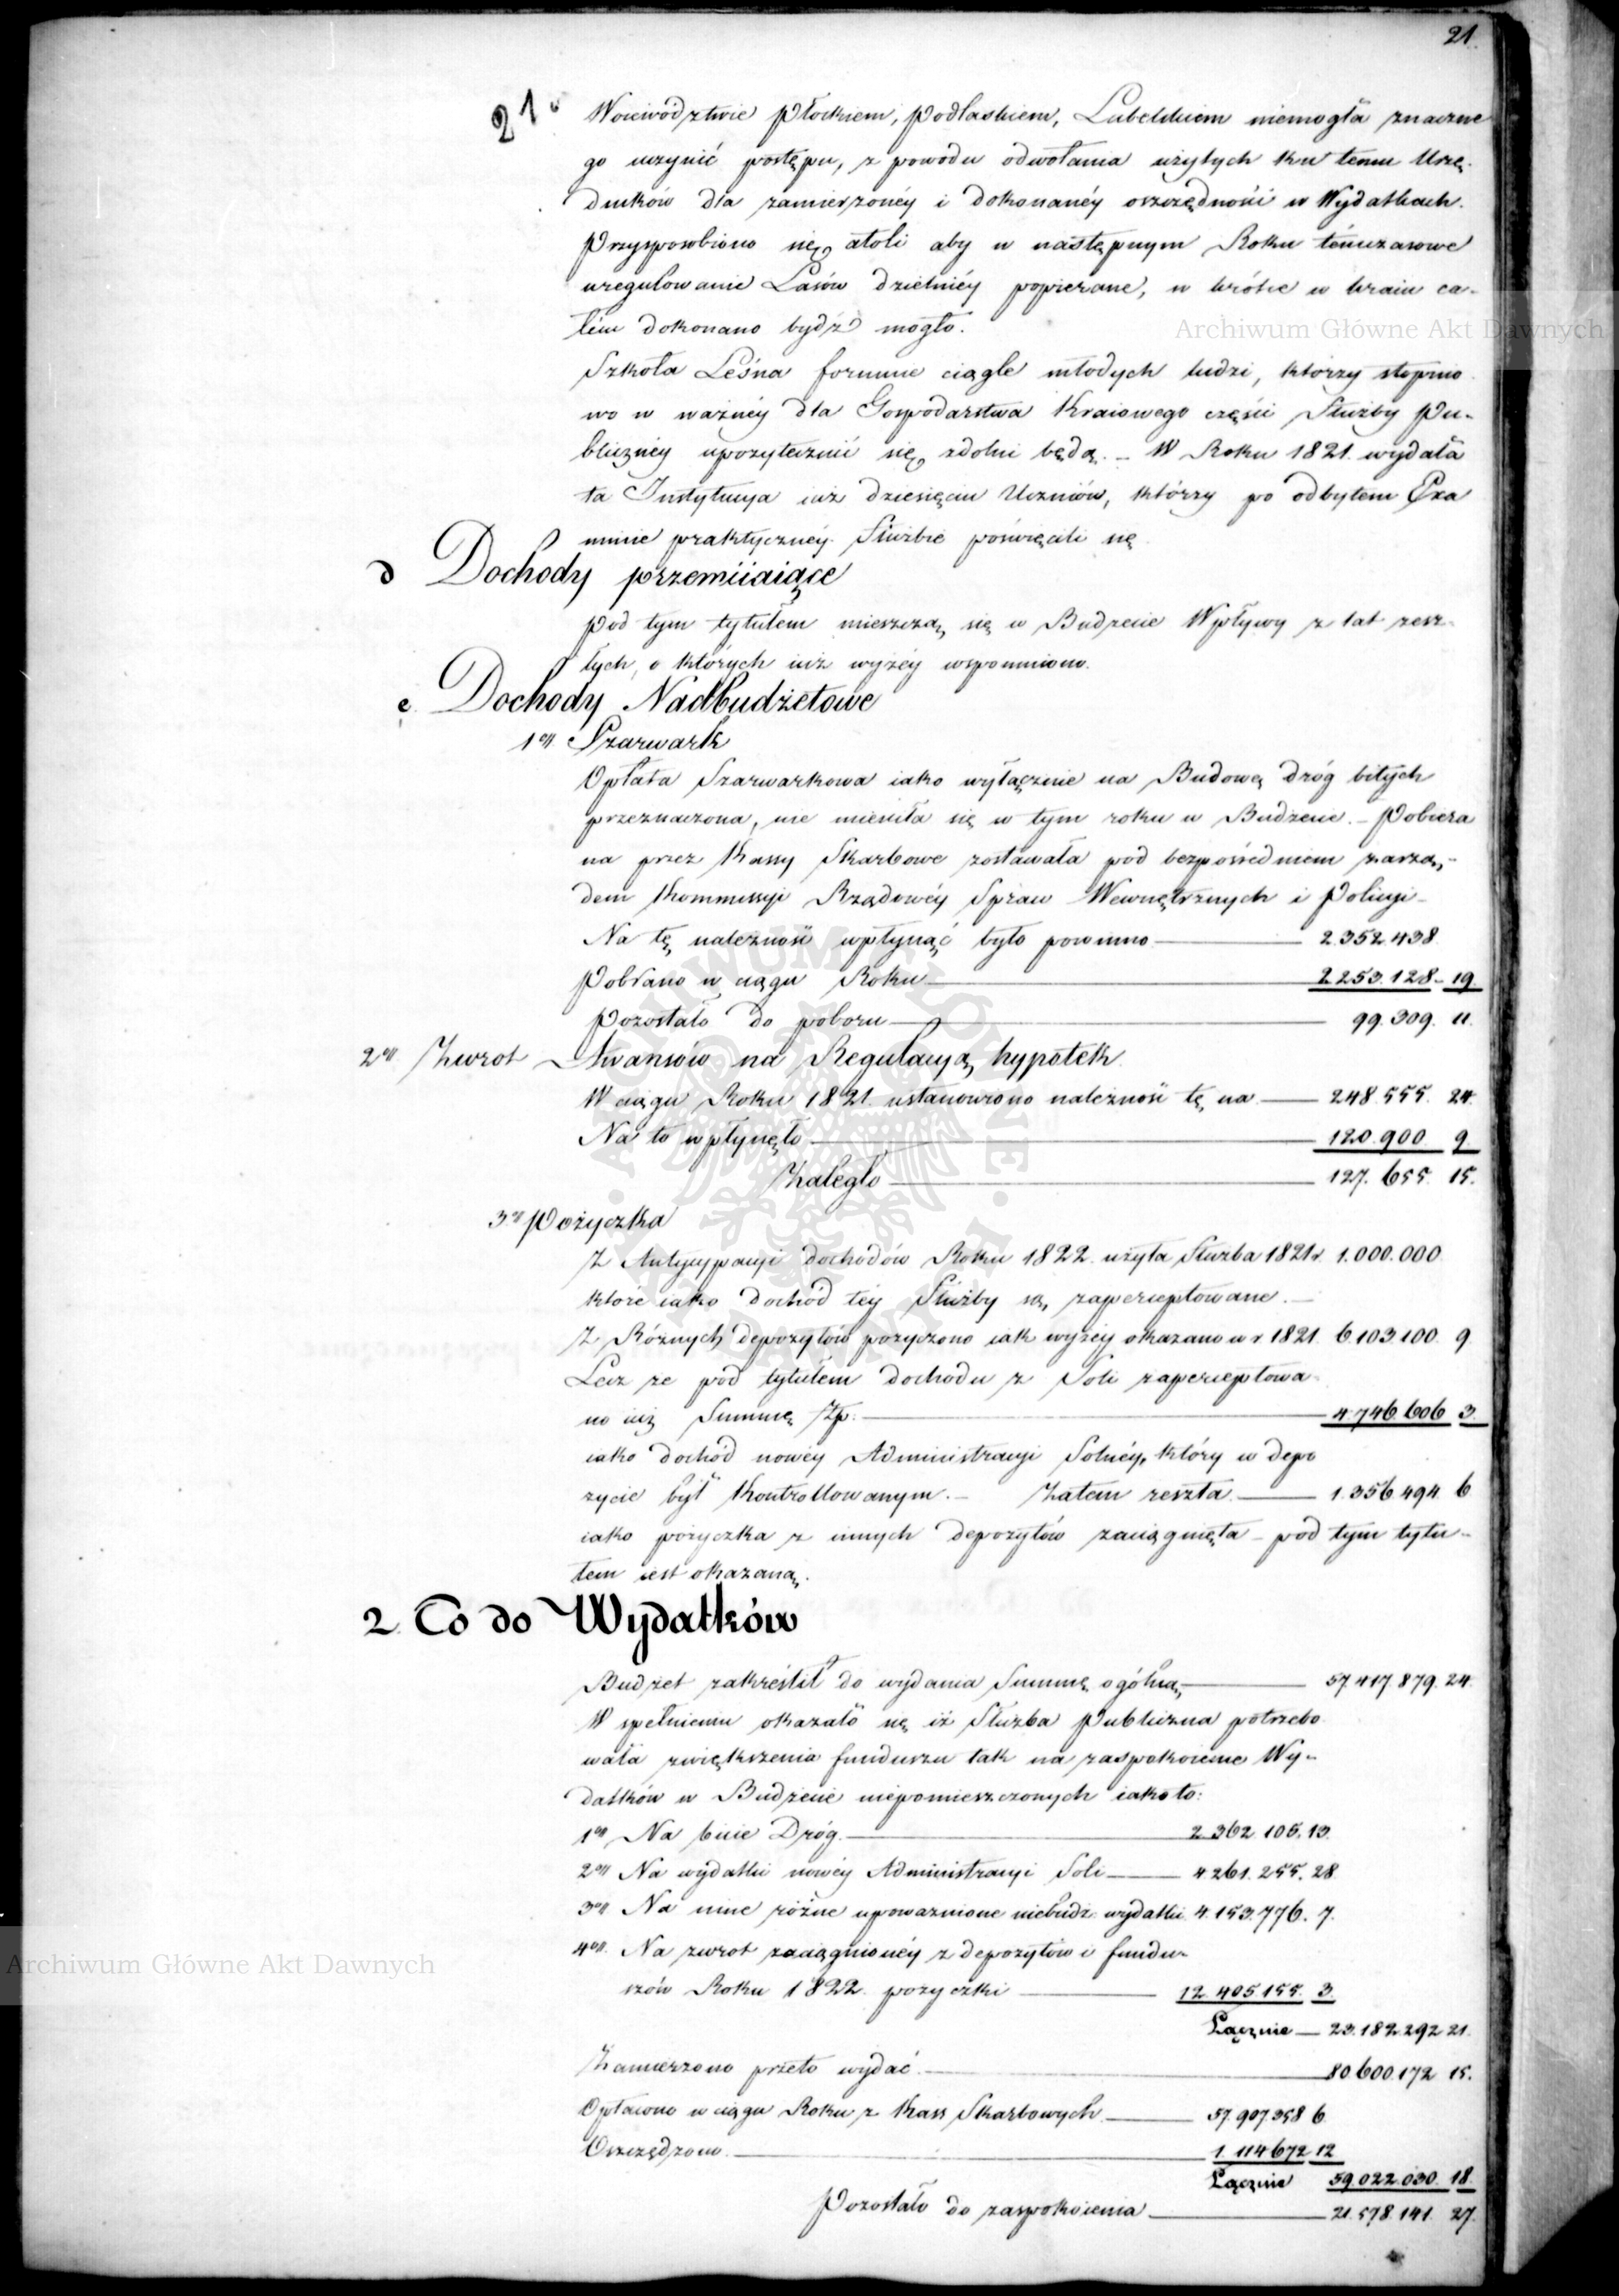 21.
21.
Woiewództwie Płockiem, Podlaskiem, Lubelskiem niemogła znaczne
go uczynić postępu, z powodu odwołania użytych ku temu Urzę-
dników dla zamierzonéy i dokonanéy oszczędności w Wydatkach.
Przysposobiono się atoli aby w następnym Roku tymczasowe
uregulowanie Lasów dzielniéy popierane, w krótce w kraiu ca-
łém dokonano bydź mogło.
Szkoła Leśna formuie ciągle młodych ludzi, którzy stopnio
wo w ważnéy dla Gospodarstwa Kraiowego części Służby Pu-
bliczney upożytecznić się zdolni będą. – W Roku 1821. wydała
ta Instytucya iuż dziesięciu Uczniów, którzy po odbytem Exa
minie praktyczney Służbie poświęcili się
d Dochody przemiiaiące
Pod tym tytułem mieszczą się w Budżecie Wpływy z lat zesz-
łych, o których iuż wyżéy wspomniono.
e. Dochody Nadbudżetowe
1o Szarwark
Opłata Szarwarkowa iako wyłącznie na Budowę dróg bitych
przeznaczona, nie mieściła się w tym roku w Budżecie. – Pobiera
na przez Kassy Skarbowe zostawała pod bezpośredniem zarzą-
dem Kommissyi Rządowéy Spraw Wewnętrznych i Policyi –
Na tę należność wpłynąć było powinno — 2.352.438.
Pobrano w ciągu Roku — 2.253.128 – 19.
Pozostało do poboru — 99.309. 11.
2o Zwrot Awansów na Regulacyą hypotek
W ciągu Roku 1821. ustanowiono należność tę na — 248.555. 24.
Na to wpłynęło — 120.900 9.
Zaległo — 127.655. 15.
3o Pożyczka
Z Antycypacyi dochodów Roku 1822. użyła Służba 1821 r. 1.000.000
które iako dochód téy Służby są zaperceptowane. –
Z Różnych depozytów pożyczono iak wyżéy okazano w r 1821. 6.103.100. 9.
Lecz że pod tytułem dochodu z Soli zaperceptowa-
no iuż Summę Zp: — 4.746.606 3.
iako dochód nowéy Administracyi Solnéy, który w depo
zycie był Kontrollowanym. – Zatem reszta — 1.356.494 6
iako pożyczka z innych depozytów zaciągnięta – pod tym tytu-
łem iest okazaną.
2. Co do Wydatków
Budżet zakreślił do wydania Summę ogólną — 57.417.879. 24.
W spełnieniu okazało się iż Służba Publiczna potrzebo
wała zwiększenia funduszu tak na zaspokoienie Wy-
datków w Budżecie niepomieszczonych iako to:
1o Na bicie Dróg. — 2.362.105. 13.
2o Na wydatki nowéy Administracyi Soli — 4.261.255. 28
3o Na inne różne upoważnione niebudż. wydatki 4.153.776. 7.
4o Na zwrot zaciągnionéy z depozytów i fundu-
szów Roku 1822. pożyczki — 12.405.155. 3.
Łącznie — 23.182.292 21.
Zamierzono przeto wydać. — 80.600.172 15.
Opłacono w ciągu Roku z Kass Skarbowych — 57.907.358 6.
Oszczędzono. — 1.114.672 12
Łącznie 59.022.030. 18.
Pozostało do zaspokoienia — 21.578.141. 27.
Archiwum Główne Akt Dawnych
Archiwum Główne Akt Dawnych